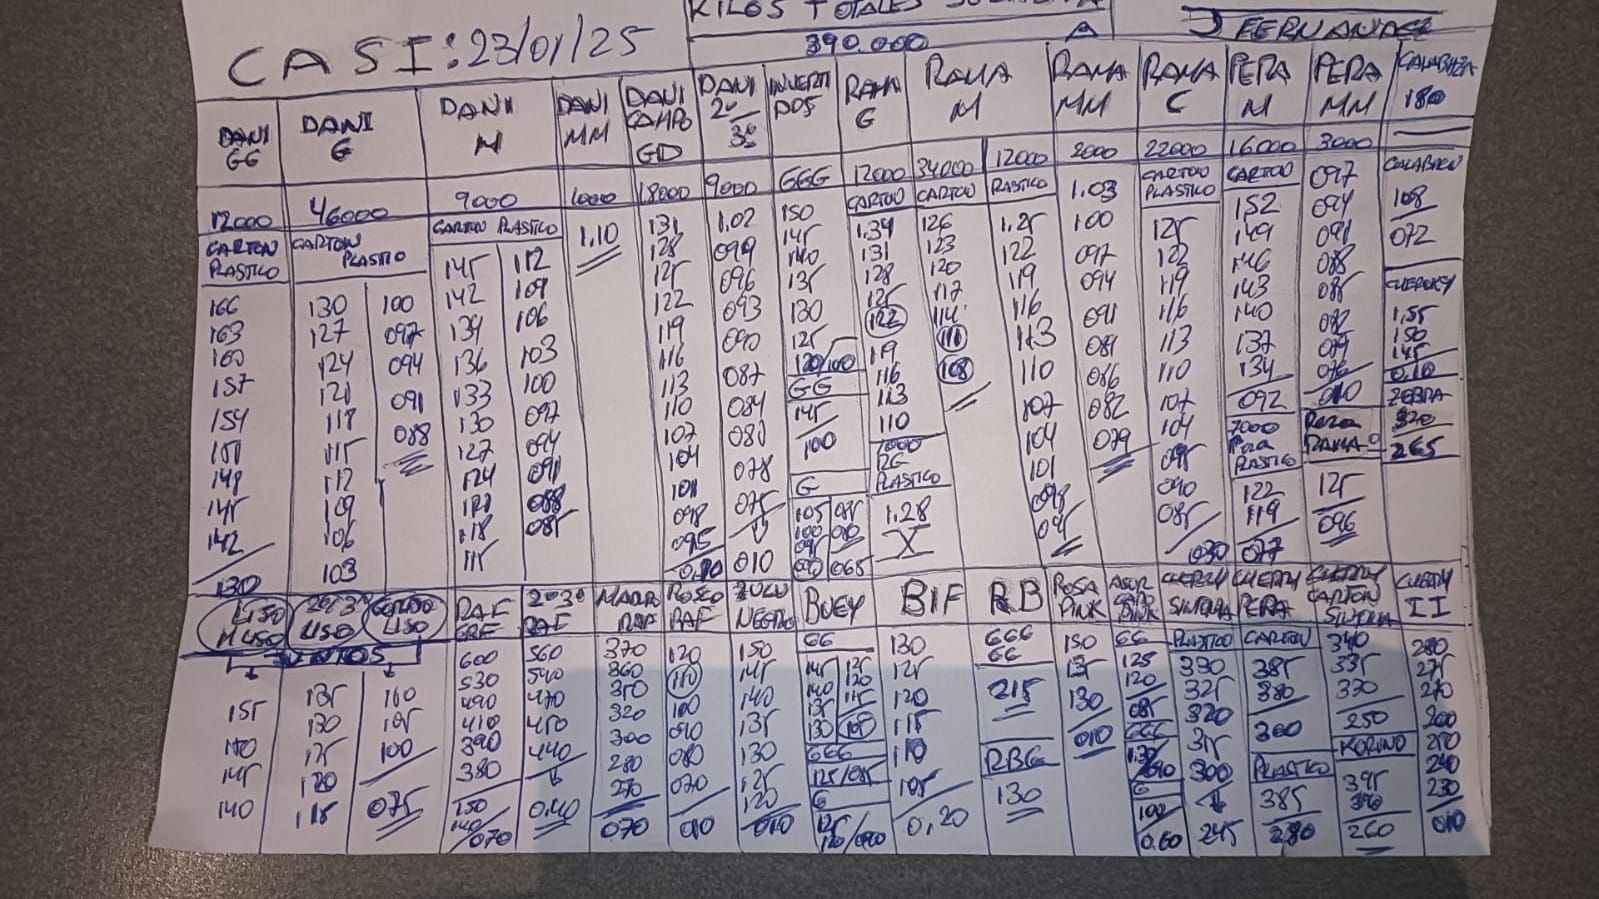 KILOS TOTALES SUBASTA
390.000 A
J FERNANDEZ
CASI: 23/01/25
DANI GG
12000
CARTON PLASTICO
166
163
160
157
154
151
148
145
142
130
DANI G
46000
CARTON PLASTICO
130 100
127 097
124 094
121 091
118 088
115
112
109
106
103
DANI M
9000
CARTON PLASTICO
145 112
142 109
139 106
136 103
133 100
130 097
127 094
124 091
121 088
118 085
115
DANI MM
1000
1.10
DANI CAMPO GD
18000
131
128
125
122
119
116
113
110
107
104
101
098
095
DANI 2º 3º
9000
1.02
099
096
093
090
087
084
080
078
075
010
INVERTIDOS
GGG
150
145
140
135
130
125
120/100
GG
145
100
G
105 085
100 080
095
090 065
RAMA G
12000
CARTON
1.34
131
128
125
122
119
116
113
110
RG PLASTICO
1.28
X
RAMA M
34000 12000
CARTON PLASTICO
126 1.25
123 122
120 119
117 116
114 113
111 110
108 107
104
101
098
095
RAMA MM
2000
1.03
100
097
094
091
086
082
079
RAMA C
22000
CARTON PLASTICO
125
122
119
116
113
110
107
104
095
090
085
030
PERA M
16000
CARTON
152
149
146
143
140
137
134
092
7000
Pera PLASTICO
122
119
077
PERA MM
3000
097
094
091
088
085
082
079
076
010
Pera RAMA
125
096
CALABAZA
180
CALABACIN
108
072
CHEROKY
1,55
150
145
0.10
ZEBRA
320
265
LISO M LISO
155
150
145
140
2º3º LISO
135
130
125
120
118
GORDO LISO
JUNTOS
105
100
075
RAF GRE
600
530
490
410
390
380
150
140/070
2º3º RAF
560
540
470
450
440
0,40
MARR RAF
370
360
350
320
300
280
270
070
ROSCO RAF
120
110
100
090
080
070
010
ZULU NEGRO
150
145
140
135
130
125
120
010
BUEY
GG
145 125
140 120
135 115
130 100
GGG
125/085
G
125
120/090
BIF
130
125
120
115
110
105
0,20
RB
GGG
GG
215
RBG
130
ROSA PINK
150
135
130
010
PINK
GG
125
120
085
GGG
G
100
0.60
CHERRY SINTONIA
PLASTICO
330
325
320
315
300
245
CHERRY PERA
CARTON
385
380
300
PLASTICO
385
280
CHERRY CARTON SINTONIA
340
335
330
250
KORINO
395
390
260
CHERRY II
280
275
270
260
250
240
230
010